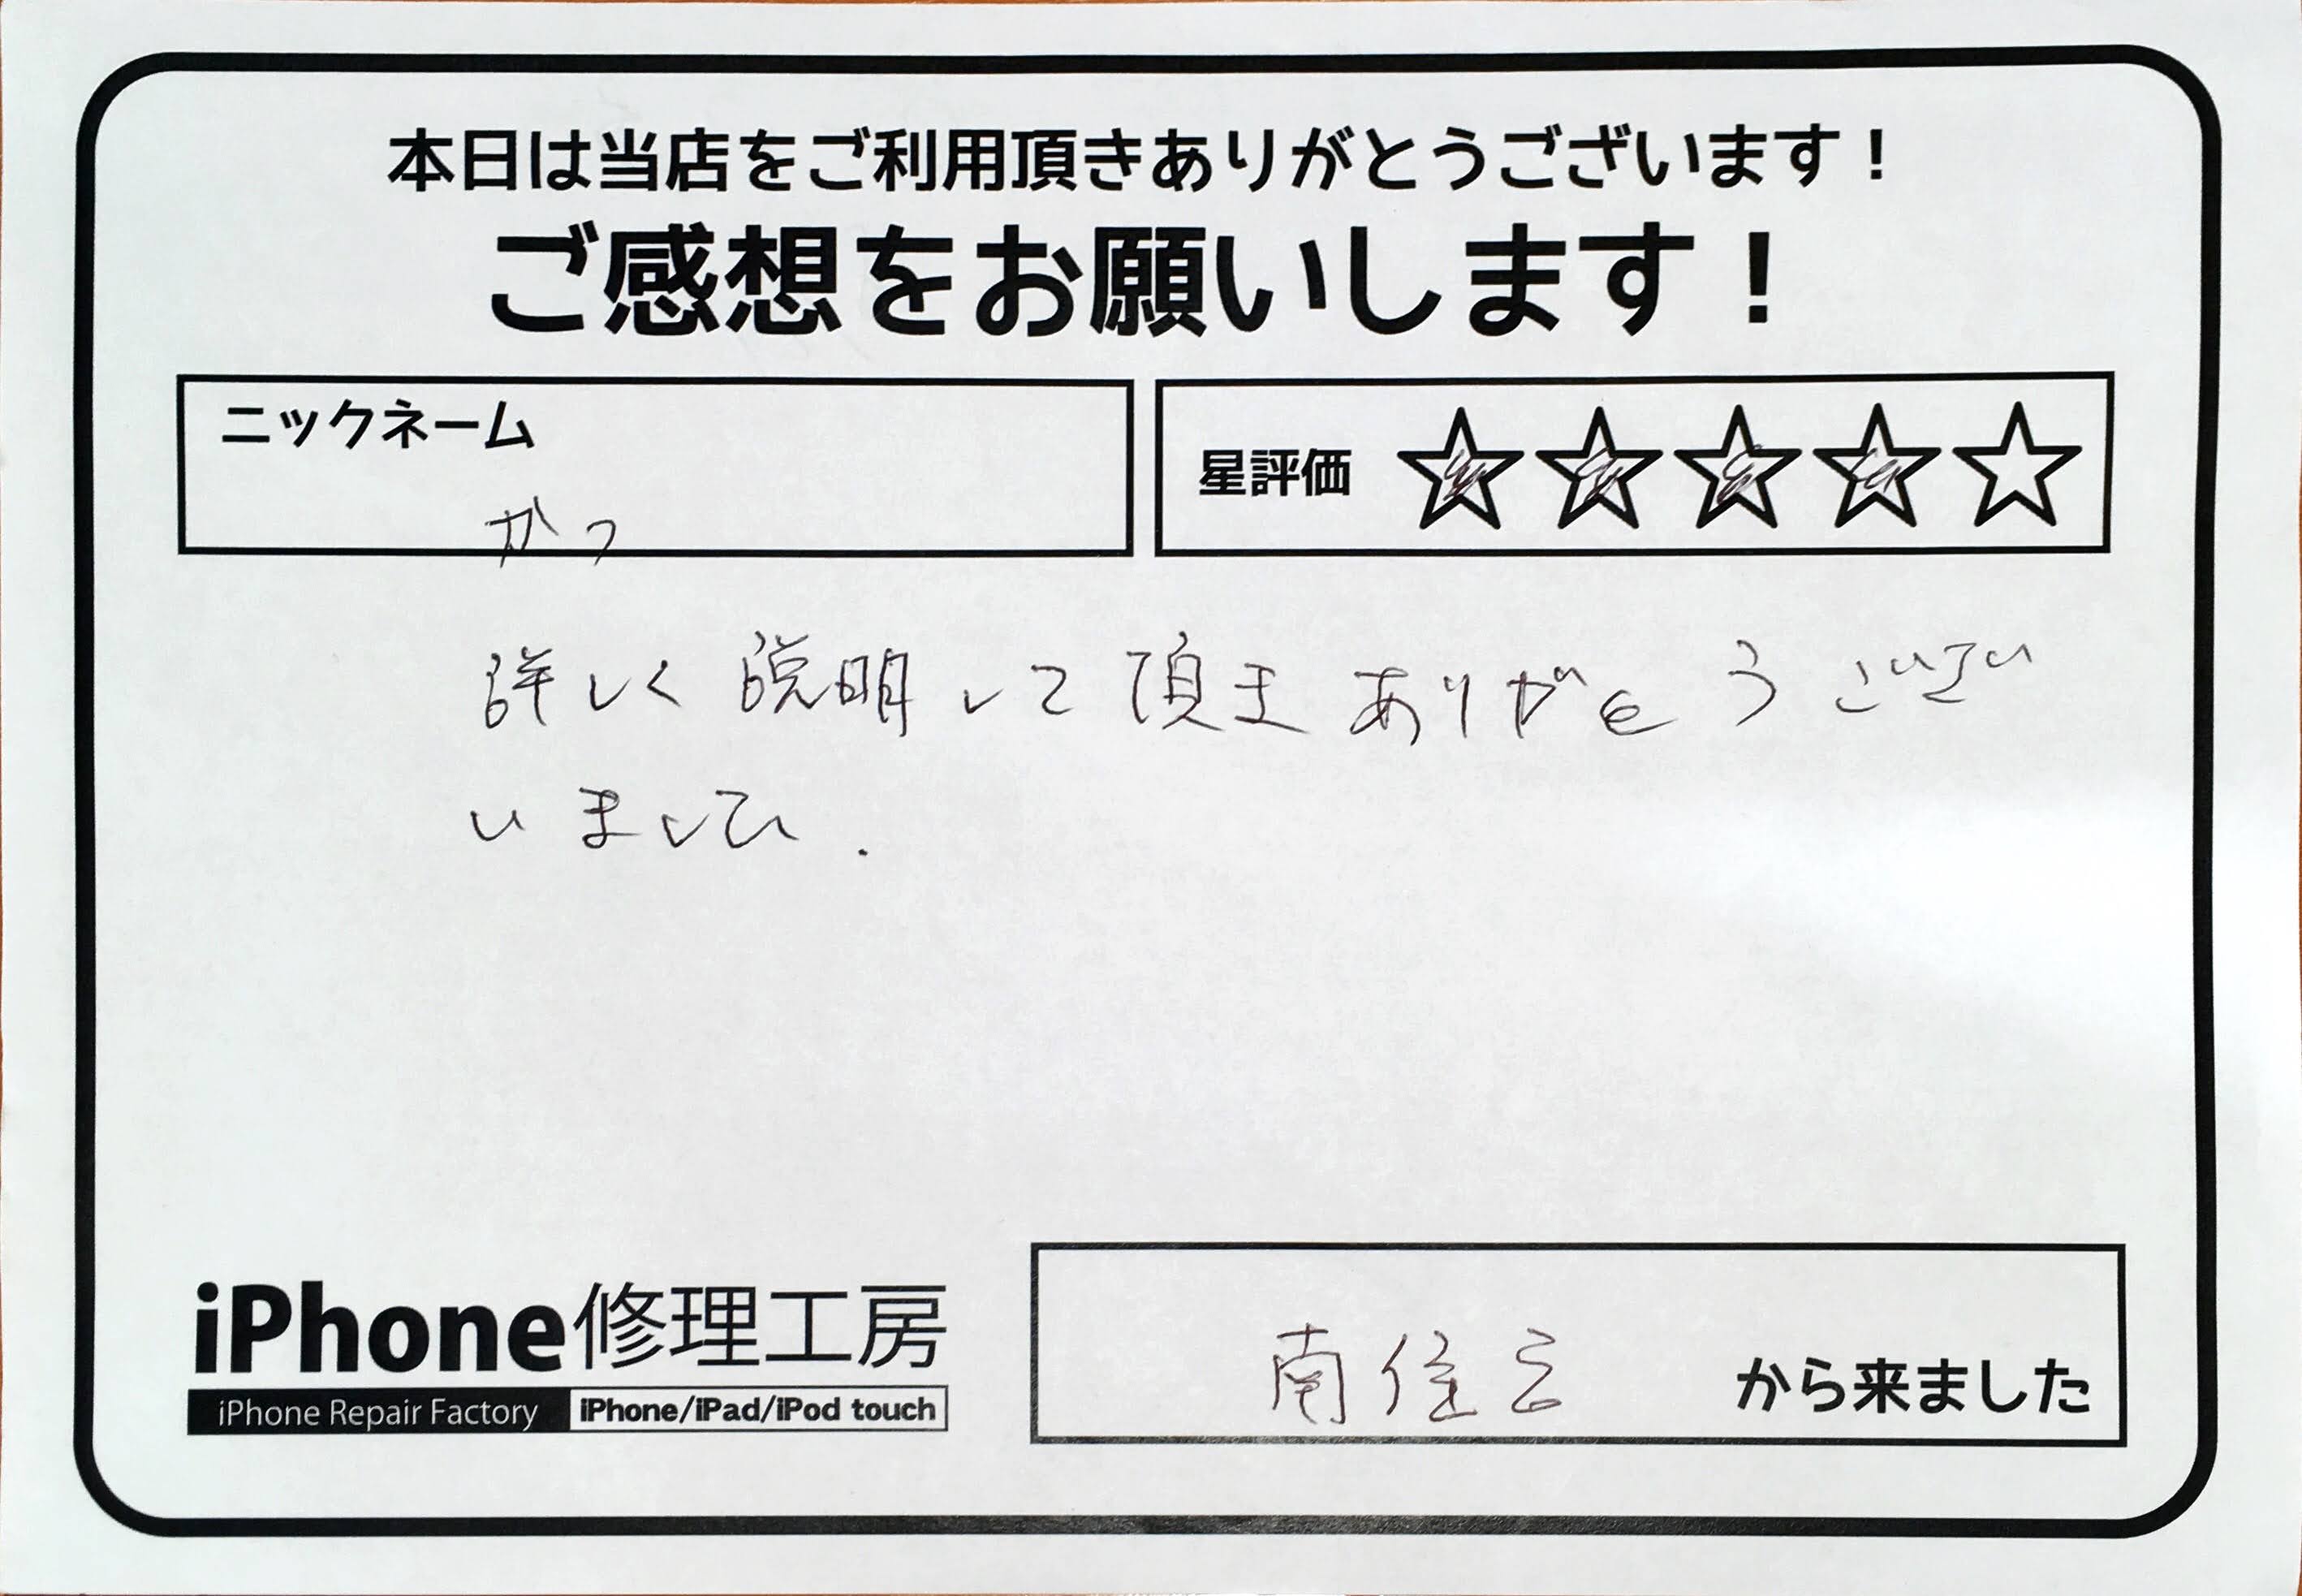 本日は当店をご利用頂きありがとうございます!
ご感想をお願いします!
ニックネーム
かつ
星評価 ☆☆☆☆☆
詳しく説明して頂きありがとうござい
いました.
iPhone修理工房
iPhone Repair Factory iPhone/iPad/iPod touch
南住吉 から来ました